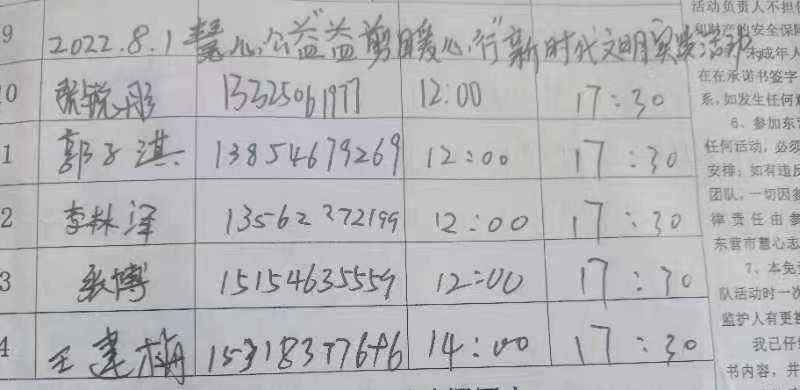 9 2022.8.1 慧心公益"益剪暖心行"新时代文明实践活动
0 张锐彤 13325061977 12:00 17:30
1 郭子淇 13854679269 12:00 17:30
2 李林泽 13562272199 12:00 17:30
3 张博 15154635559 12:00 17:30
4 王建楠 15318377646 14:00 17:30
活动负责人不担
和财产的安全保
未成年人
在在承诺书签字
系,如发生任何
6、参加东
任何活动,必须
安排;如有违反
团队,一切因参
律责任由参
东营市慧心志
7、本免
队活动时一次
监护人有更
我已仔
书内容,并